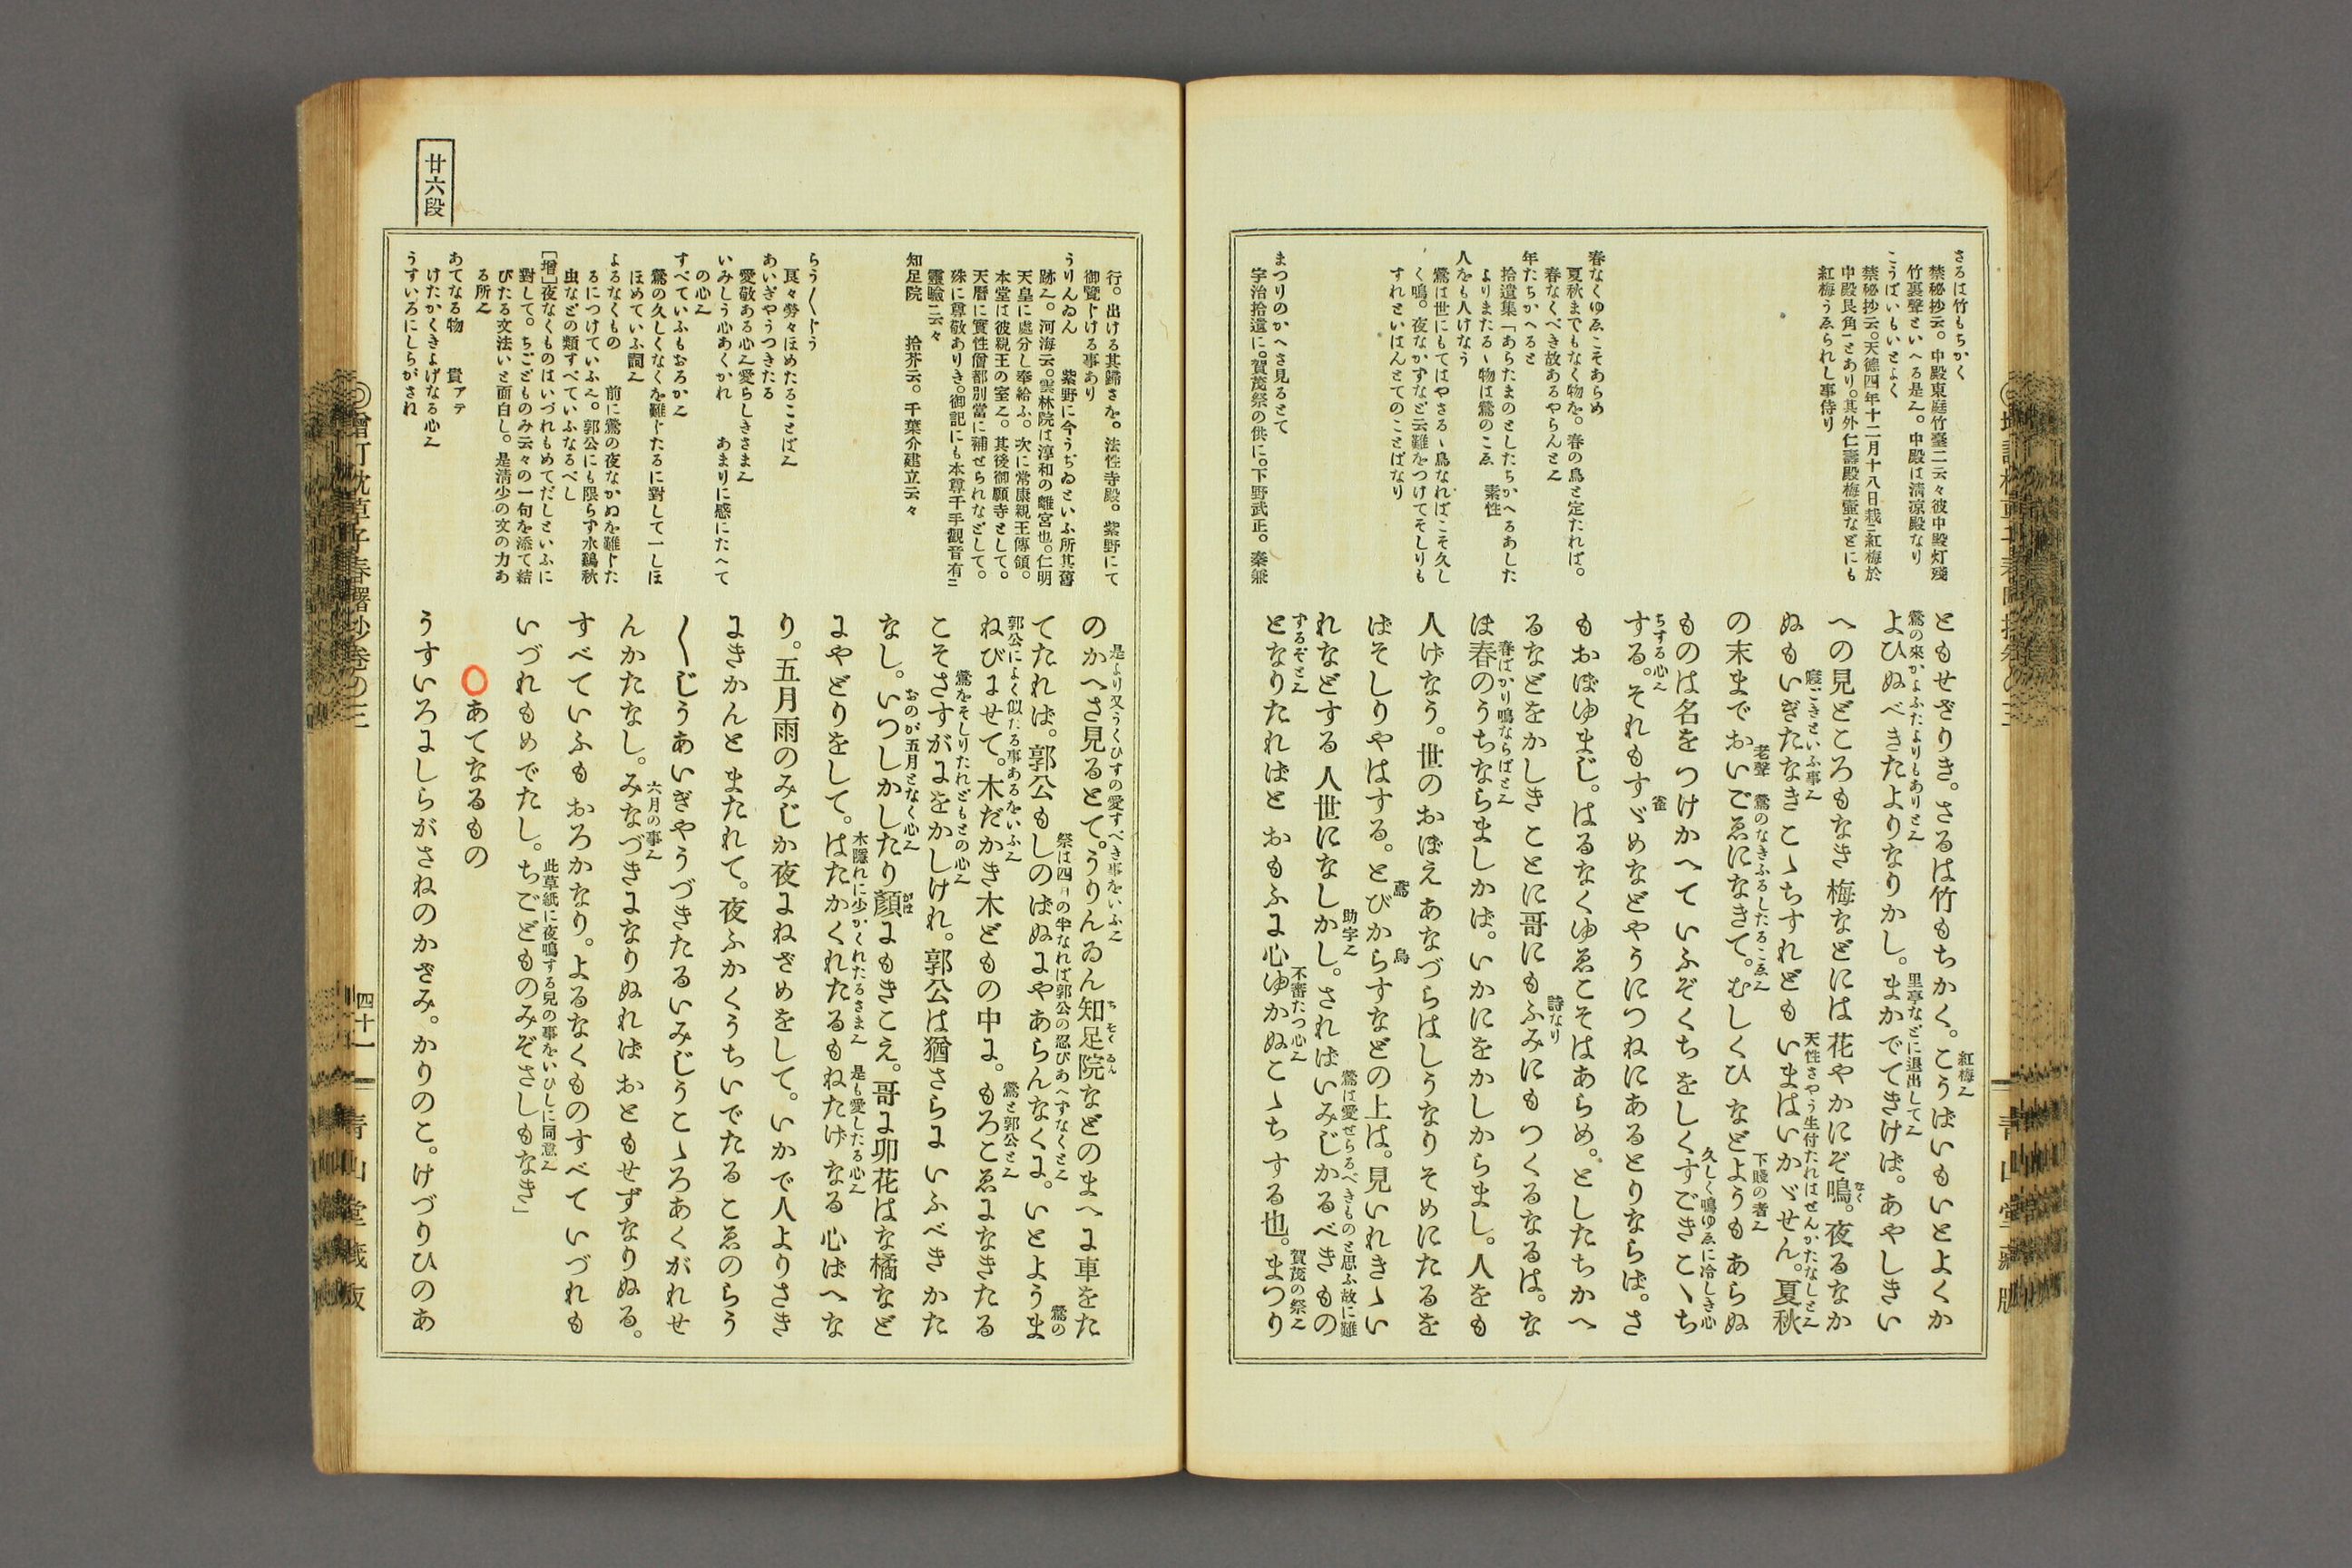 さるは竹もちかく
禁秘抄云。中殿東庭竹臺二云々彼中殿灯殘
竹裏聲といへる是𛀆。中殿は清凉殿なり
こうばいもいとよく
禁秘抄云。天德四年十二月十八日栽ニ紅梅於
中殿艮角ーとあり。其外仁壽殿梅壷などにも
紅梅うゑられし事侍り
春なくゆゑこそあらめ
夏秋までもなく物を。春の鳥と定たれば。
春なくべき故あるやらんと𛀆
年たちかへると
拾遺集「あらたまのとしたちかへるあした
よりまたるゝ物は鶯のこゑ　素性
人をも人げなう
鶯は世にもてはやさるゝ鳥なればこそ久し
く鳴。夜なかずなど云難をつけてそしりも
すれといはんとてのことばなり
まつりのかへさ見るとて
宇治拾遺に。賀茂祭の供に。下野武正。秦兼
ともせざりき。さるは竹もちかく。こうばいもいとよくか
紅梅𛀆
よひぬべきたよりなりかし。まかでてきけば。あやしきい
鶯の來かよふたよりもありと𛀆
里亭などに退出して𛀆
への見どころもなき梅などには花やかにぞ鳴。夜るなか
なく
ぬもいぎたなきこゝちすれどもいまはいかゞせん。夏秋
寢ごきといふ事𛀆
天性さやう生付たればせんかたなしと𛀆
の末までおいごゑになきて。むしくひなどようもあらぬ
老聲　鶯のなきふるしたるこゑ𛀆
下賤の者𛀆
ものは名をつけかへていふぞくちをしくすごきこゝち
久しく鳴ゆゑに冷しき心
する。それもすゞめなどやうにつねにあるとりならば。さ
ちする心𛀆
雀
もおぼゆまじ。はるなくゆゑこそはあらめ。としたちかへ
るなどをかしきことに哥にもふみにもつくるなるは。な
詩なり
ほ春のうちならましかば。いかにをかしからまし。人をも
春ばかり鳴ならばと𛀆
人げなう。世のおぼえあなづらはしうなりそめにたるを
ばそしりやはする。とびからすなどの上は。見いれきゝい
鳶
烏
れなどする人世になしかし。さればいみじかるべきもの
助字𛀆
鶯は愛せらるべきものと思ふ故に難
となりたればとおもふに心ゆかぬこゝちする也。まつり
するぞと𛀆
不審たつ心𛀆
賀茂の祭𛀆
行。出ける其歸さを。法性寺殿。紫野にて
御覽じける事あり
うりんゐん　紫野に今うぢゐといふ所其舊
跡𛀆。河海云。雲林院は淳和の離宮也。仁明
天皇に處分し奉給ふ。次に常康親王傳領。
本堂は彼親王の室𛀆。其後御願寺として。
天暦に實性僧都別當に補せられなどして。
殊に尊敬ありき。御記にも本尊千手觀音有ニ
靈驗ニ云々
知足院　拾芥云。千葉介建立云々
らう〳〵じう
良々勞々ほめたることば𛀆
あいぎやうつきたる
愛敬ある心𛀆愛らしきさま𛀆
いみしう心あくかれ　あまりに感にたへて
の心𛀆
すべていふもおろか𛀆
鶯の久しくなくを難じたるに對して一しほ
ほめていふ詞𛀆
よるなくもの　前に鶯の夜なかぬを難じた
るにつけていふ𛀆。郭公にも限らず水鷄秋
虫などの類すべていふなるべし
［增］夜なくものはいづれもめてだしといふに
對して。ちごどものみ云々の一句を添て結
びたる文法いと面白し。是清少の文の力あ
る所𛀆
あてなる物　貴アテ
けたかくきよげなる心𛀆
うすいろにしらがさね
のかへさ見るとて。うりんゐん知足院などのまへに車をた
是より又うくひすの愛すべき事をいふ𛀆
ちそくゐん
てたれば。郭公もしのばぬにやあらんなくに。いとようま
祭は四月の半なれば郭公の忍びあへずなくと𛀆
鶯の
ねびにせて。木だかき木どもの中に。もろこゑになきたる
郭公によく似たる事あるをいふ𛀆
鶯と郭公と𛀆
こそさすがにをかしけれ。郭公は猶さらにいふべきかた
鶯をそしりたれどもとの心𛀆
なし。いつしかしたり顔にもきこえ。哥に卯花はな橘など
おのが五月となく心𛀆
がほ
にやどりをして。はたかくれたるもねたげなる心ばへな
木隱れに少かくれたるさま𛀆
是も愛したる心𛀆
り。五月雨のみじか夜にねざめをして。いかで人よりさき
にきかんとまたれて。夜ふかくうちいでたるこゑのらう
〳〵じうあいぎやうづきたるいみじうこゝろあくがれせ
んかたなし。みなづきになりぬればおともせずなりぬる。
六月の事𛀆
すべていふもおろかなり。よるなくものすべていづれも
いづれもめでたし。ちごどものみぞさしもなき」
此草紙に夜鳴する兒の事をいひしに同意𛀆
○あてなるもの
うすいろにしらがさねのかざみ。かりのこ。けづりひのあ
廿六段
增訂枕草子春曙抄卷の三
四十一
青山堂藏版